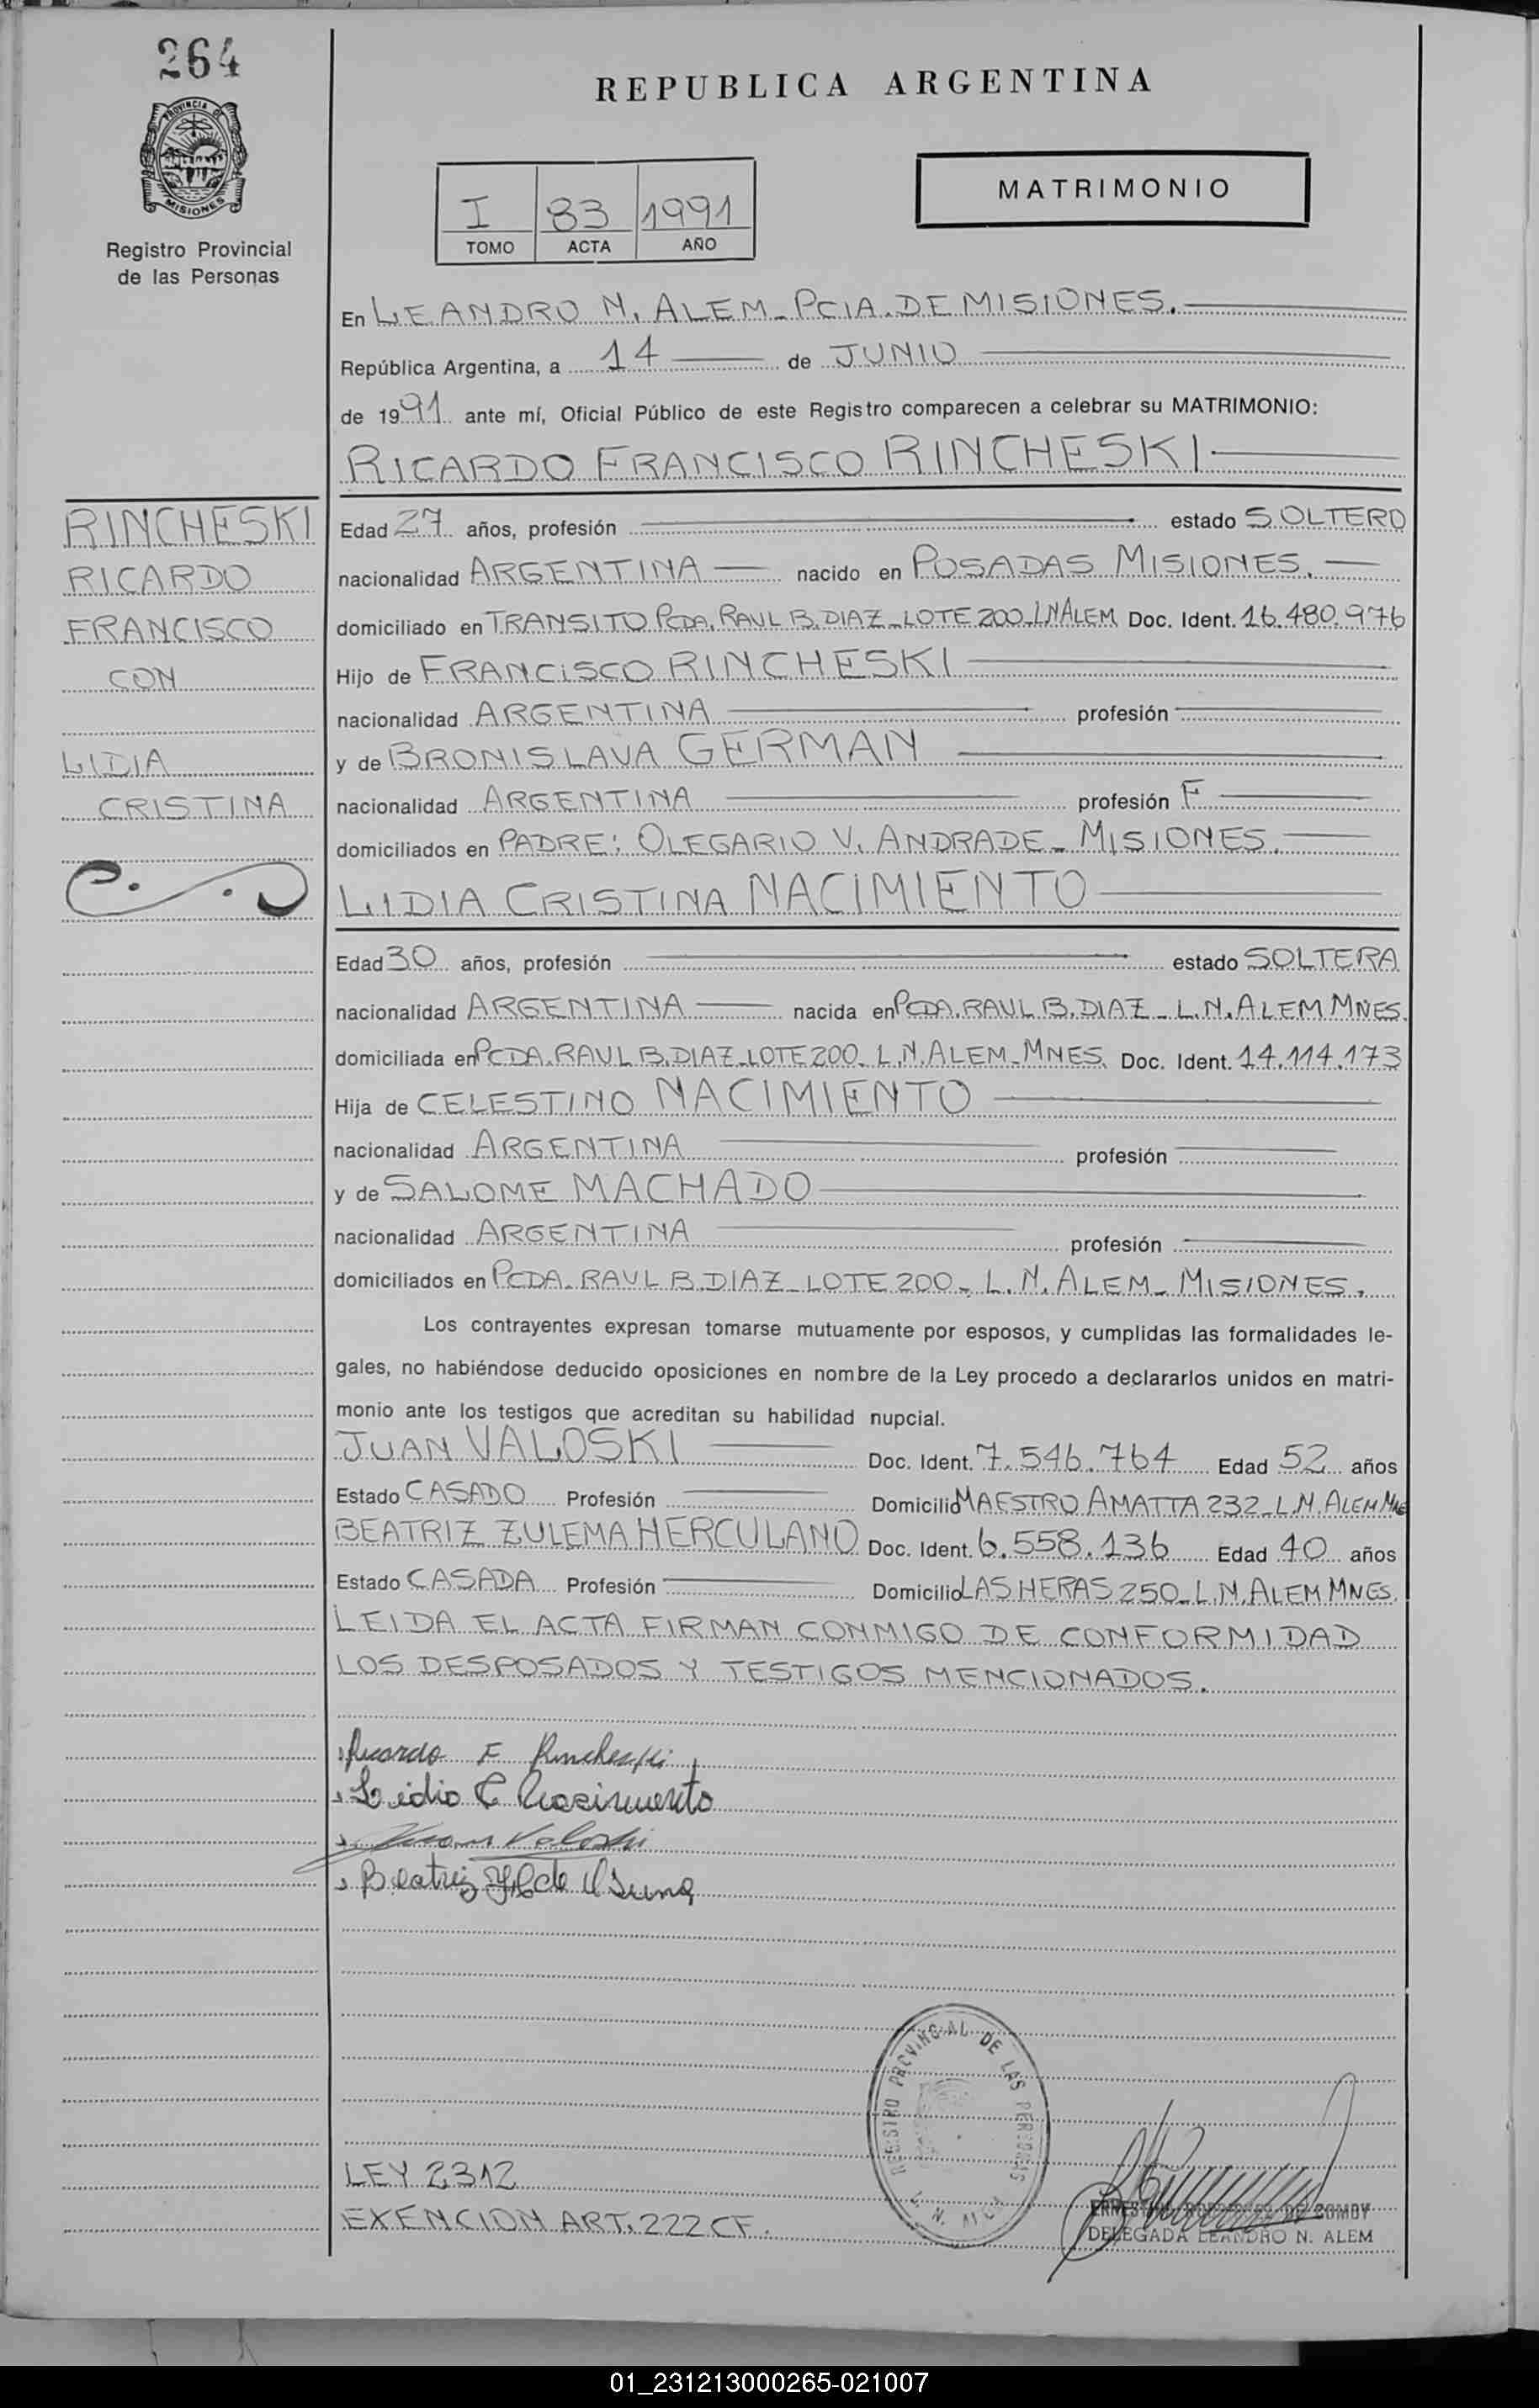 264
PROVINCIA DE
MISIONES
Registro Provincial
de las Personas
REPUBLICA ARGENTINA
I 83 1991
TOMO ACTA AÑO
MATRIMONIO
En LEANDRO N. ALEM - PCIA. DE MISIONES.
República Argentina, a 14 de JUNIO
de 1991 ante mí, Oficial Público de este Registro comparecen a celebrar su MATRIMONIO:
RICARDO FRANCISCO RINCHESKI
RINCHESKI
RICARDO
FRANCISCO
CON
LIDIA
CRISTINA
Edad 27 años, profesión estado SOLTERO
nacionalidad ARGENTINA nacido en POSADAS MISIONES.
domiciliado en TRANSITO PCDA. RAUL B. DIAZ - LOTE 200 - L N ALEM Doc. Ident. 16.480.976
Hijo de FRANCISCO RINCHESKI
nacionalidad ARGENTINA profesión
y de BRONISLAVA GERMAN
nacionalidad ARGENTINA profesión F
domiciliados en PADRE: OLEGARIO V. ANDRADE - MISIONES.
LIDIA CRISTINA NACIMIENTO
Edad 30 años, profesión estado SOLTERA
nacionalidad ARGENTINA nacida en PCDA. RAUL B. DIAZ - L. N. ALEM MNES.
domiciliada en PCDA. RAUL B. DIAZ - LOTE 200 - L. N. ALEM - MNES. Doc. Ident. 14.114.173
Hija de CELESTINO NACIMIENTO
nacionalidad ARGENTINA profesión
y de SALOME MACHADO
nacionalidad ARGENTINA profesión
domiciliados en PCDA. RAUL B. DIAZ - LOTE 200 - L. N. ALEM - MISIONES.
Los contrayentes expresan tomarse mutuamente por esposos, y cumplidas las formalidades le-
gales, no habiéndose deducido oposiciones en nombre de la Ley procedo a declararlos unidos en matri-
monio ante los testigos que acreditan su habilidad nupcial.
JUAN VALOSKI Doc. Ident. 7.546.764 Edad 52 años
Estado CASADO Profesión Domicilio MAESTRO AMATTA 232 - L. N. ALEM MNE
BEATRIZ ZULEMA HERCULANO Doc. Ident. 6.558.136 Edad 40 años
Estado CASADA Profesión Domicilio LAS HERAS 250 - L. N. ALEM MNES.
LEIDA EL ACTA FIRMAN CONMIGO DE CONFORMIDAD
LOS DESPOSADOS Y TESTIGOS MENCIONADOS.
Ricardo F Rincheski
Lidia C Nacimiento
Juan Valoski
Beatriz
REGISTRO PROVINCIAL DE LAS PERSONAS
L. N. ALEM
LEY 2312
EXENCION ART. 222 CF.
DELEGADA LEANDRO N. ALEM
01_231213000265-021007